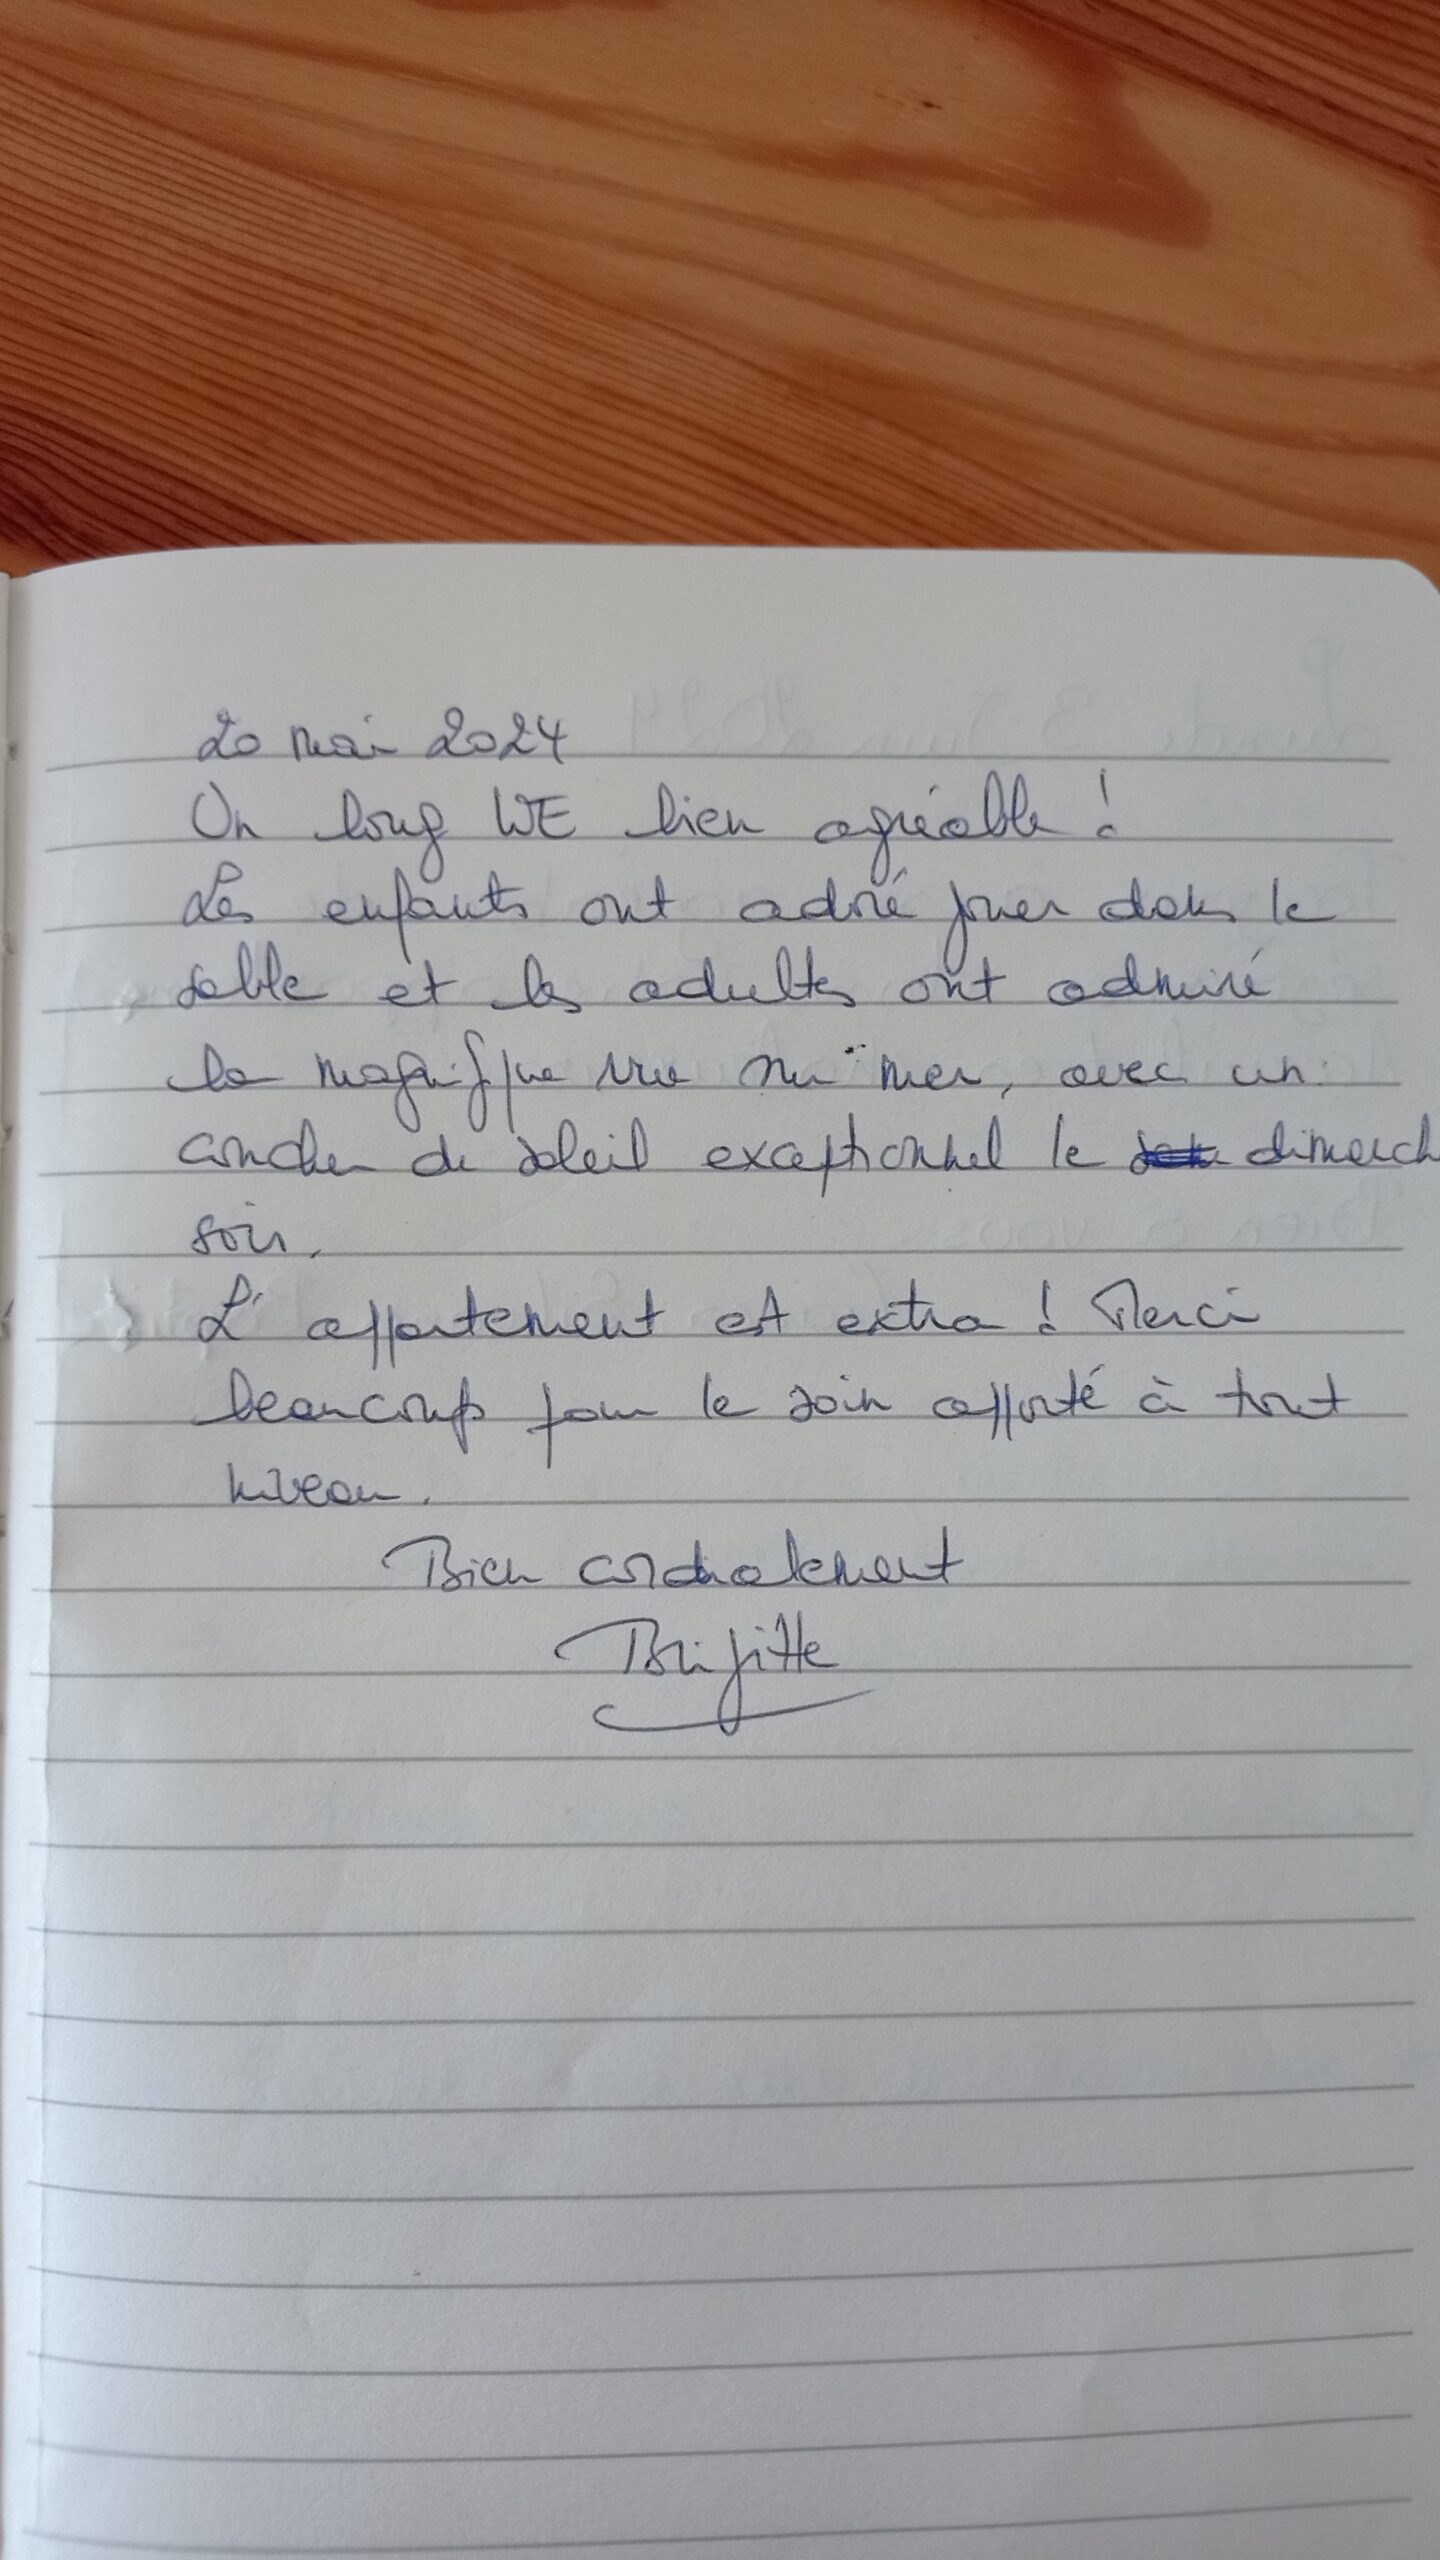 20 mai 2024
Un long WE bien agréable !
Les enfants ont adoré jouer dans le
sable et les adultes ont admiré
la magnifique vue sur mer, avec un
coucher de soleil exceptionnel le dimanch
soir.
L'appartement est extra ! Merci
beaucoup pour le soin apporté à tout
niveau.
Bien cordialement
Brigitte